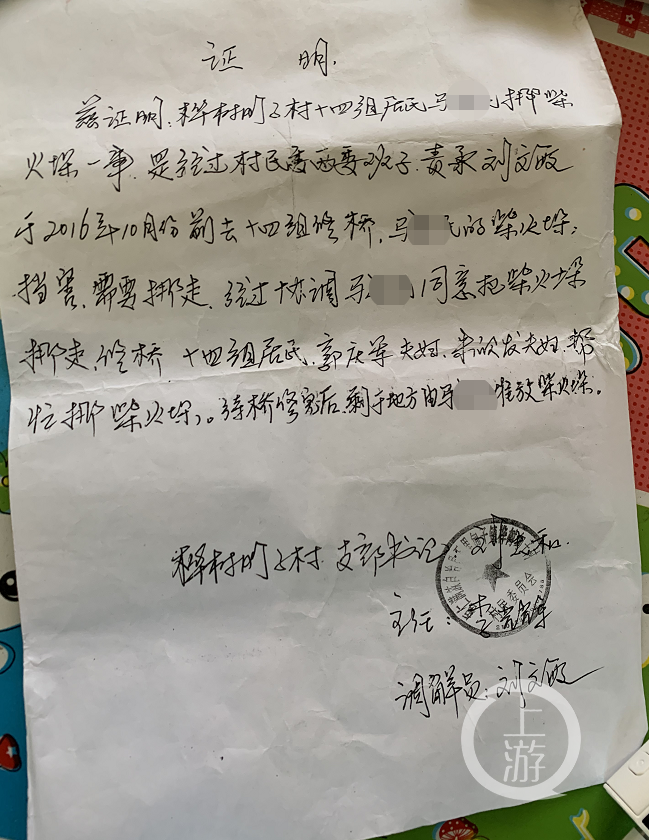 证 明.
兹证明,桦树川子村十四组居民马民挪柴
火垛一事,是经过村民委两委班子,责承刘文政
于2016年10月份前去十四组修桥,马民的柴火垛;
挡害,需要挪走,经过协调马同意把柴火垛
挪走,修桥 十四组居民,郭庆军夫妇,发夫妇,帮
忙挪柴火垛。待桥修完后,剩于地方由马堆放柴火垛。
村 支部书记 刘和.
委员会
主任:李
调解员:刘文政
上游